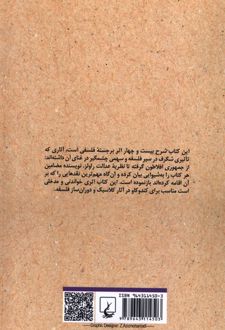 این کتاب شرح بیست و چهار اثر برجستهٔ فلسفی است، آثاری که
تأثیری شگرف در سیر فلسفه و سهمی چشمگیر در غنای آن داشته‌اند:
از جمهوری افلاطون گرفته تا نظریهٔ عدالت راولز. نویسنده مضامین
هر کتاب را به‌شیوایی بیان کرده و آن‌گاه مهم‌ترین نقدهایی را که بر
آن اقامه کرده‌اند بازنموده است. این کتاب اثری خواندنی و مدخلی
است مناسب برای کندوکاو در آثار کلاسیک و دوران‌ساز فلسفه.
Graphic Designer: